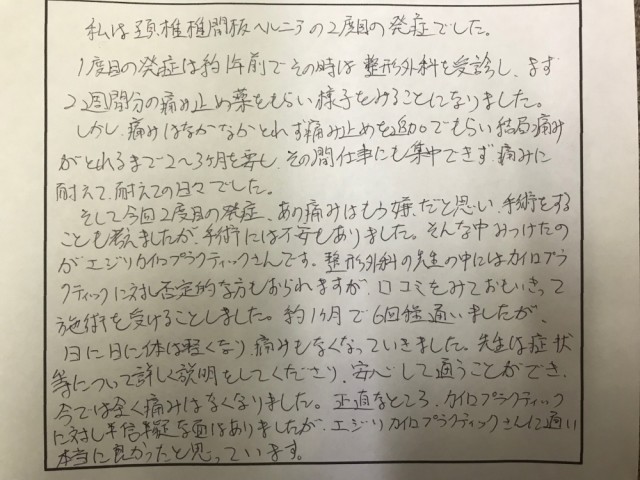 私は頚椎椎間板ヘルニアの2度目の発症でした。
1度目の発症は約1年前でその時は整形外科を受診し、まず
2週間分の痛み止め薬をもらい様子をみることになりました。
しかし、痛みはなかなかとれず痛み止めを追加でもらい結局痛み
がとれるまで2〜3ヶ月を要し、その間仕事にも集中できず、痛みに
耐えて、耐えての日々でした。
そして今回2度目の発症、あの痛みはもう嫌だと思い、手術をする
ことも考えましたが、手術には不安もありました。そんな中みつけたの
がエジリカイロプラクティックさんです。整形外科の先生の中にはカイロプラ
クティックに対し否定的な方もおられますが、口コミをみておもいきって
施術を受けることしました。約1ヶ月で6回程通いましたが、
1日に1日に体は軽くなり、痛みもなくなっていきました。先生は症状
等について詳しく説明をしてくださり、安心して通うことができ、
今では全く痛みはなくなりました。正直なところ、カイロプラクティック
に対し半信半疑な面はありましたが、エジリカイロプラクティックさんに通い
本当に良かったと思っています。